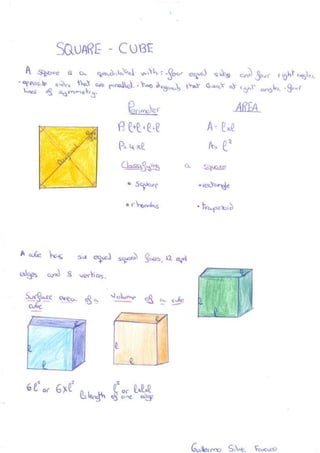 SQUARE - CUBE
A square is a quadrilateral with: - four equal sides and four right angles
- opposite sides that are parallel - two diagonals that bisect at right angles - four
lines of symmetry.
Perimeter
AREA
P= l+l+l+l
A= lxl
P= 4xl
A= l²
Diagonal
Classifying a square
• Square
• rectangle
• rhombus
• trapezoid
A cube has six equal squared faces, 12 equal
edges and 8 vertices.
Surface area of a
cube
Volume of a cube
l
l
l
l
l
l
6l² or 6xl²
l³ or lxlxl
l = length of one edge
Guillermo Silva